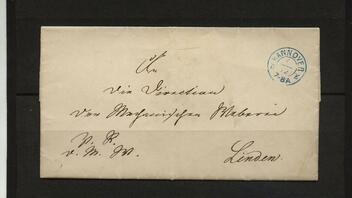 HANNOVER
7-8A
An
die Direction
der Mechanischen Weberei
Linden.